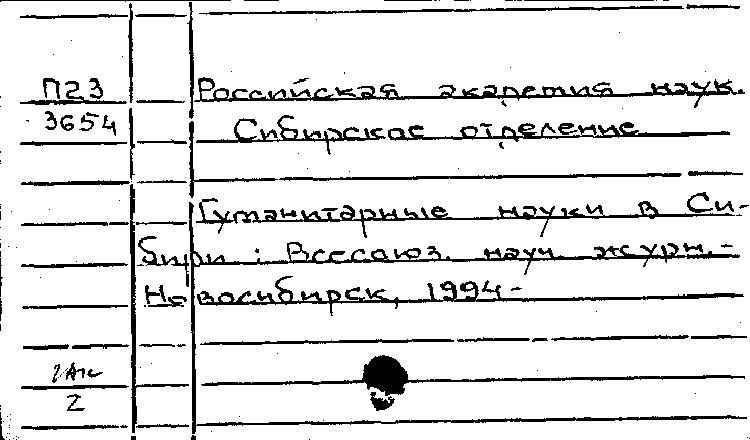 П23
3654
Российская академия наук.
Сибирское отделение
Гуманитарные науки в Си-
бири : Всесоюз. науч. журн. -
Новосибирск, 1994 -
2